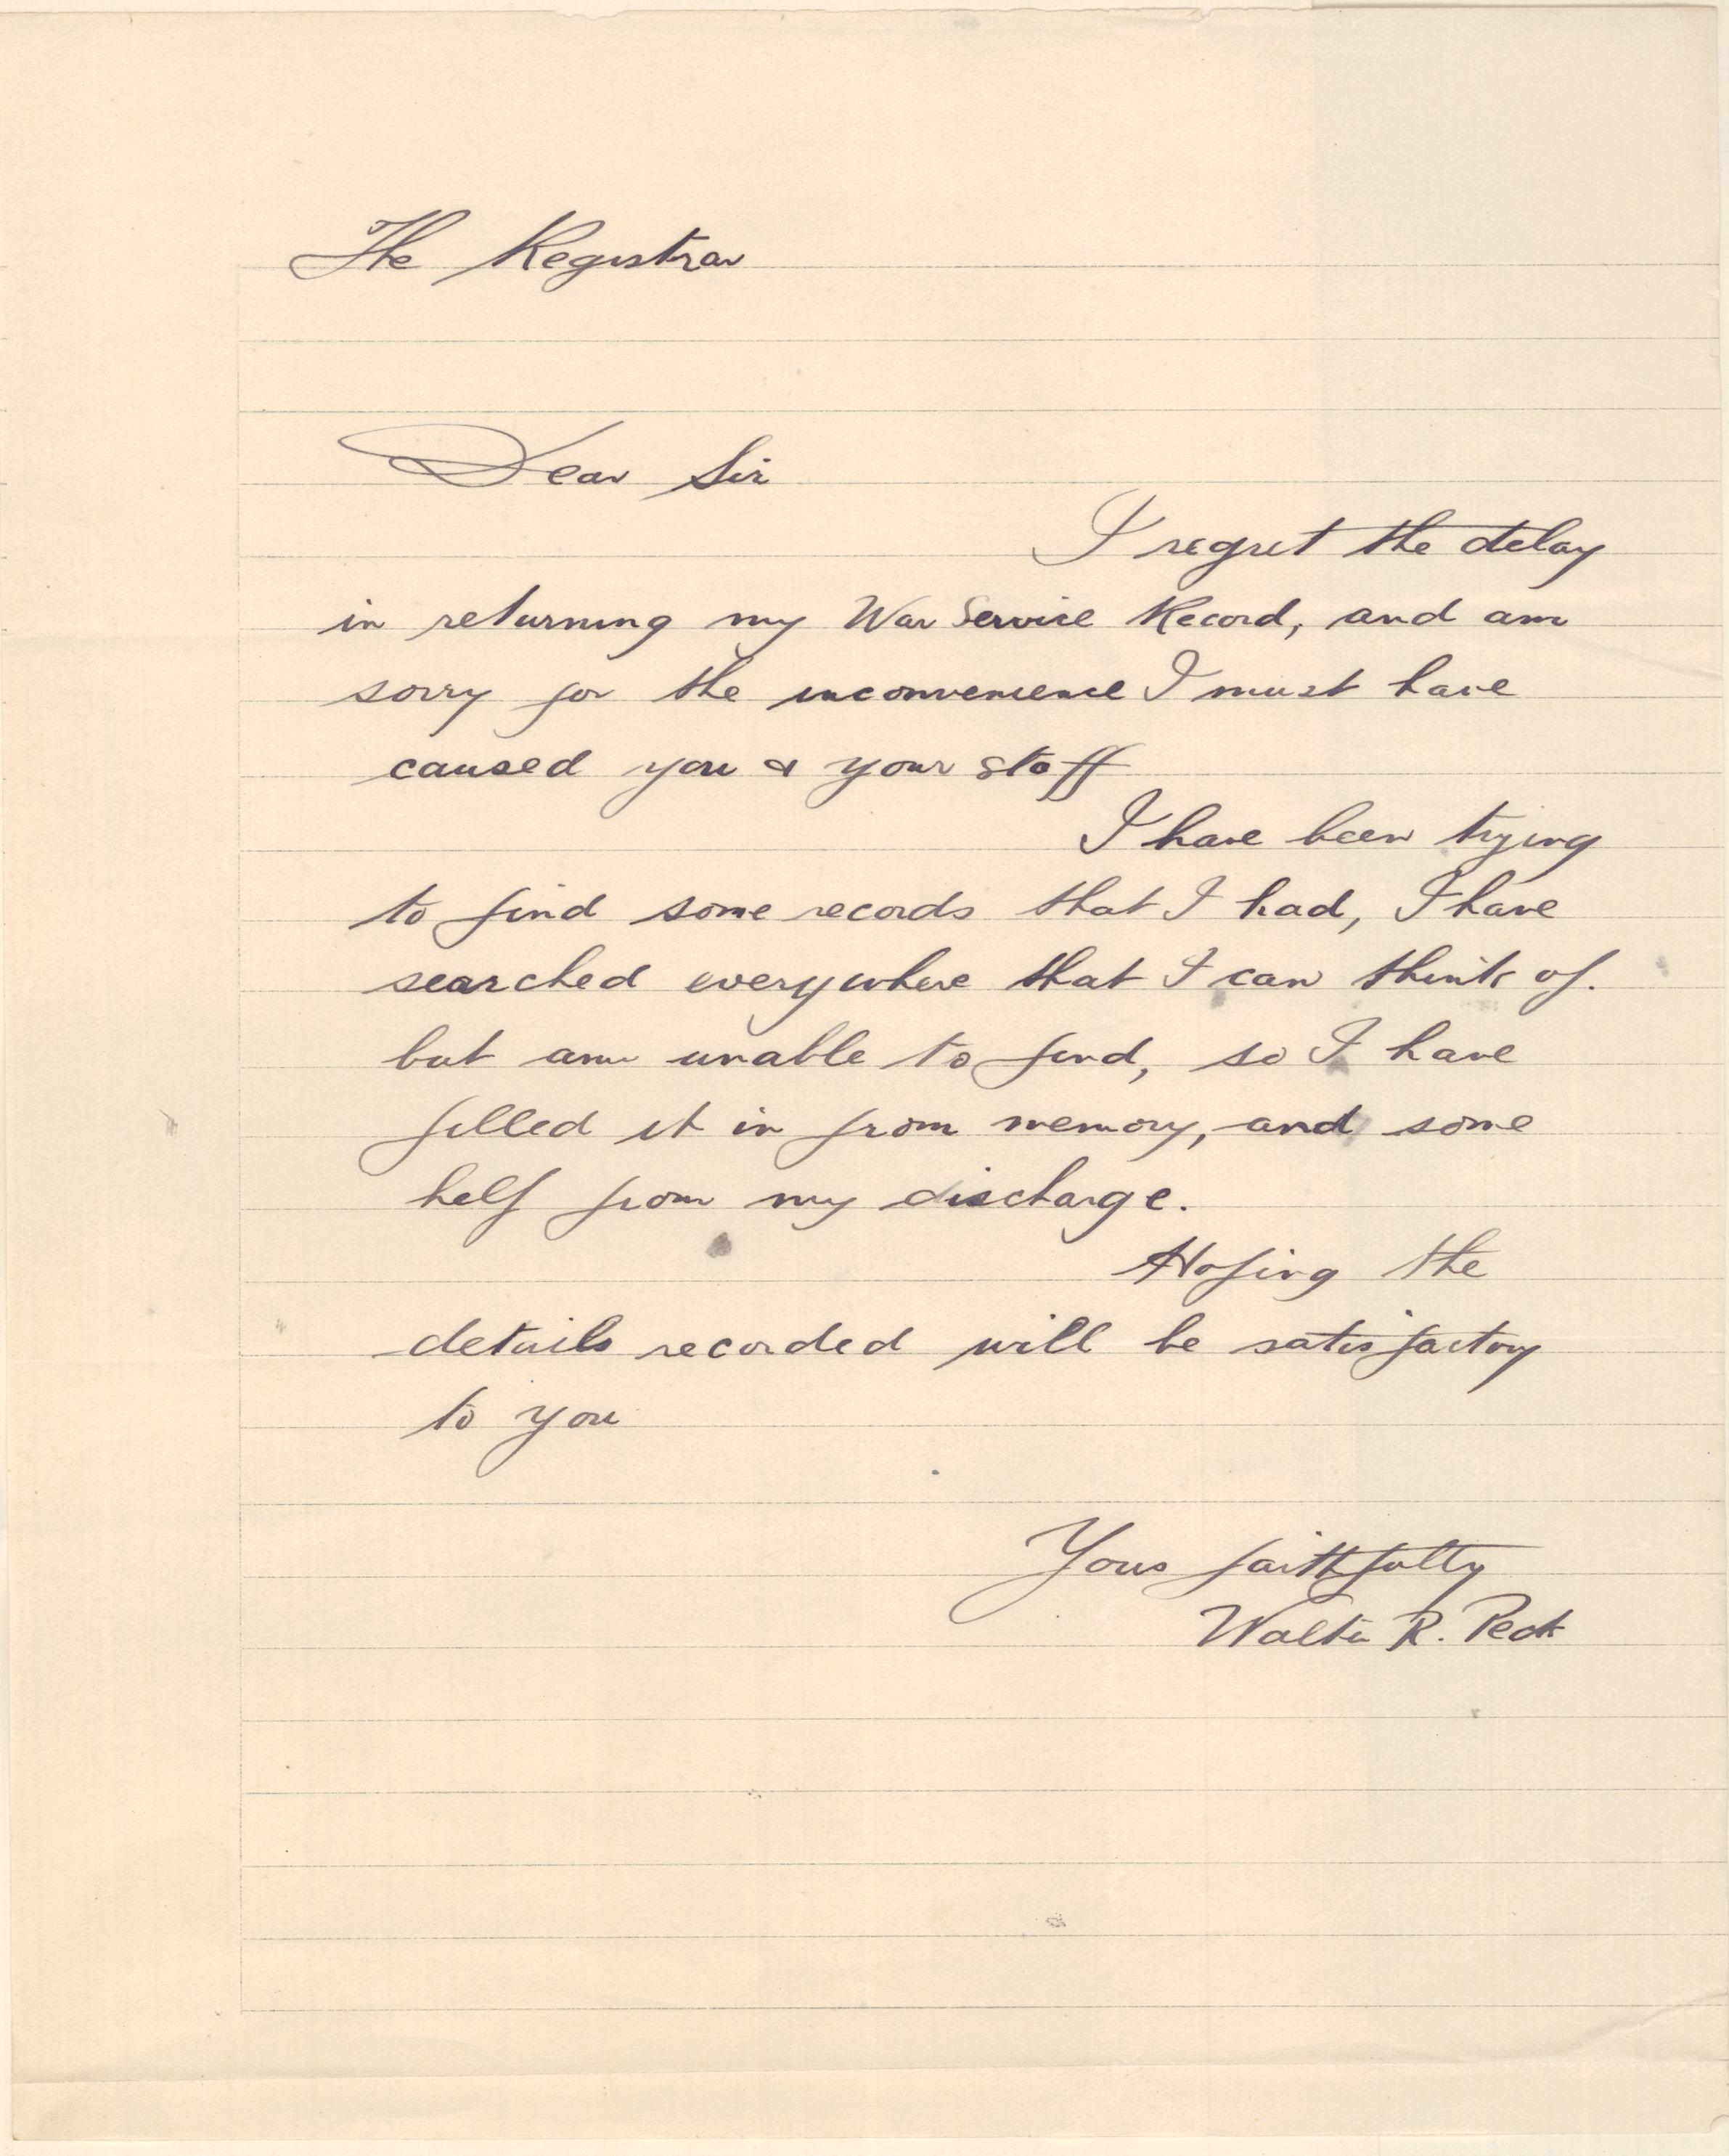 The Registrar
Dear Sir
I regret the delay
in returning my War Service Record, and am
sorry for the inconvenience I must have
caused you & your staff
I have been trying
to find some records that I had, I have
searched everywhere that I can think of.
but am unable to find, so I have
filled it in from memory, and some
help from my discharge.
Hoping the
details recorded will be satisfactory
to you
Yours faithfully
Walter R. Peck